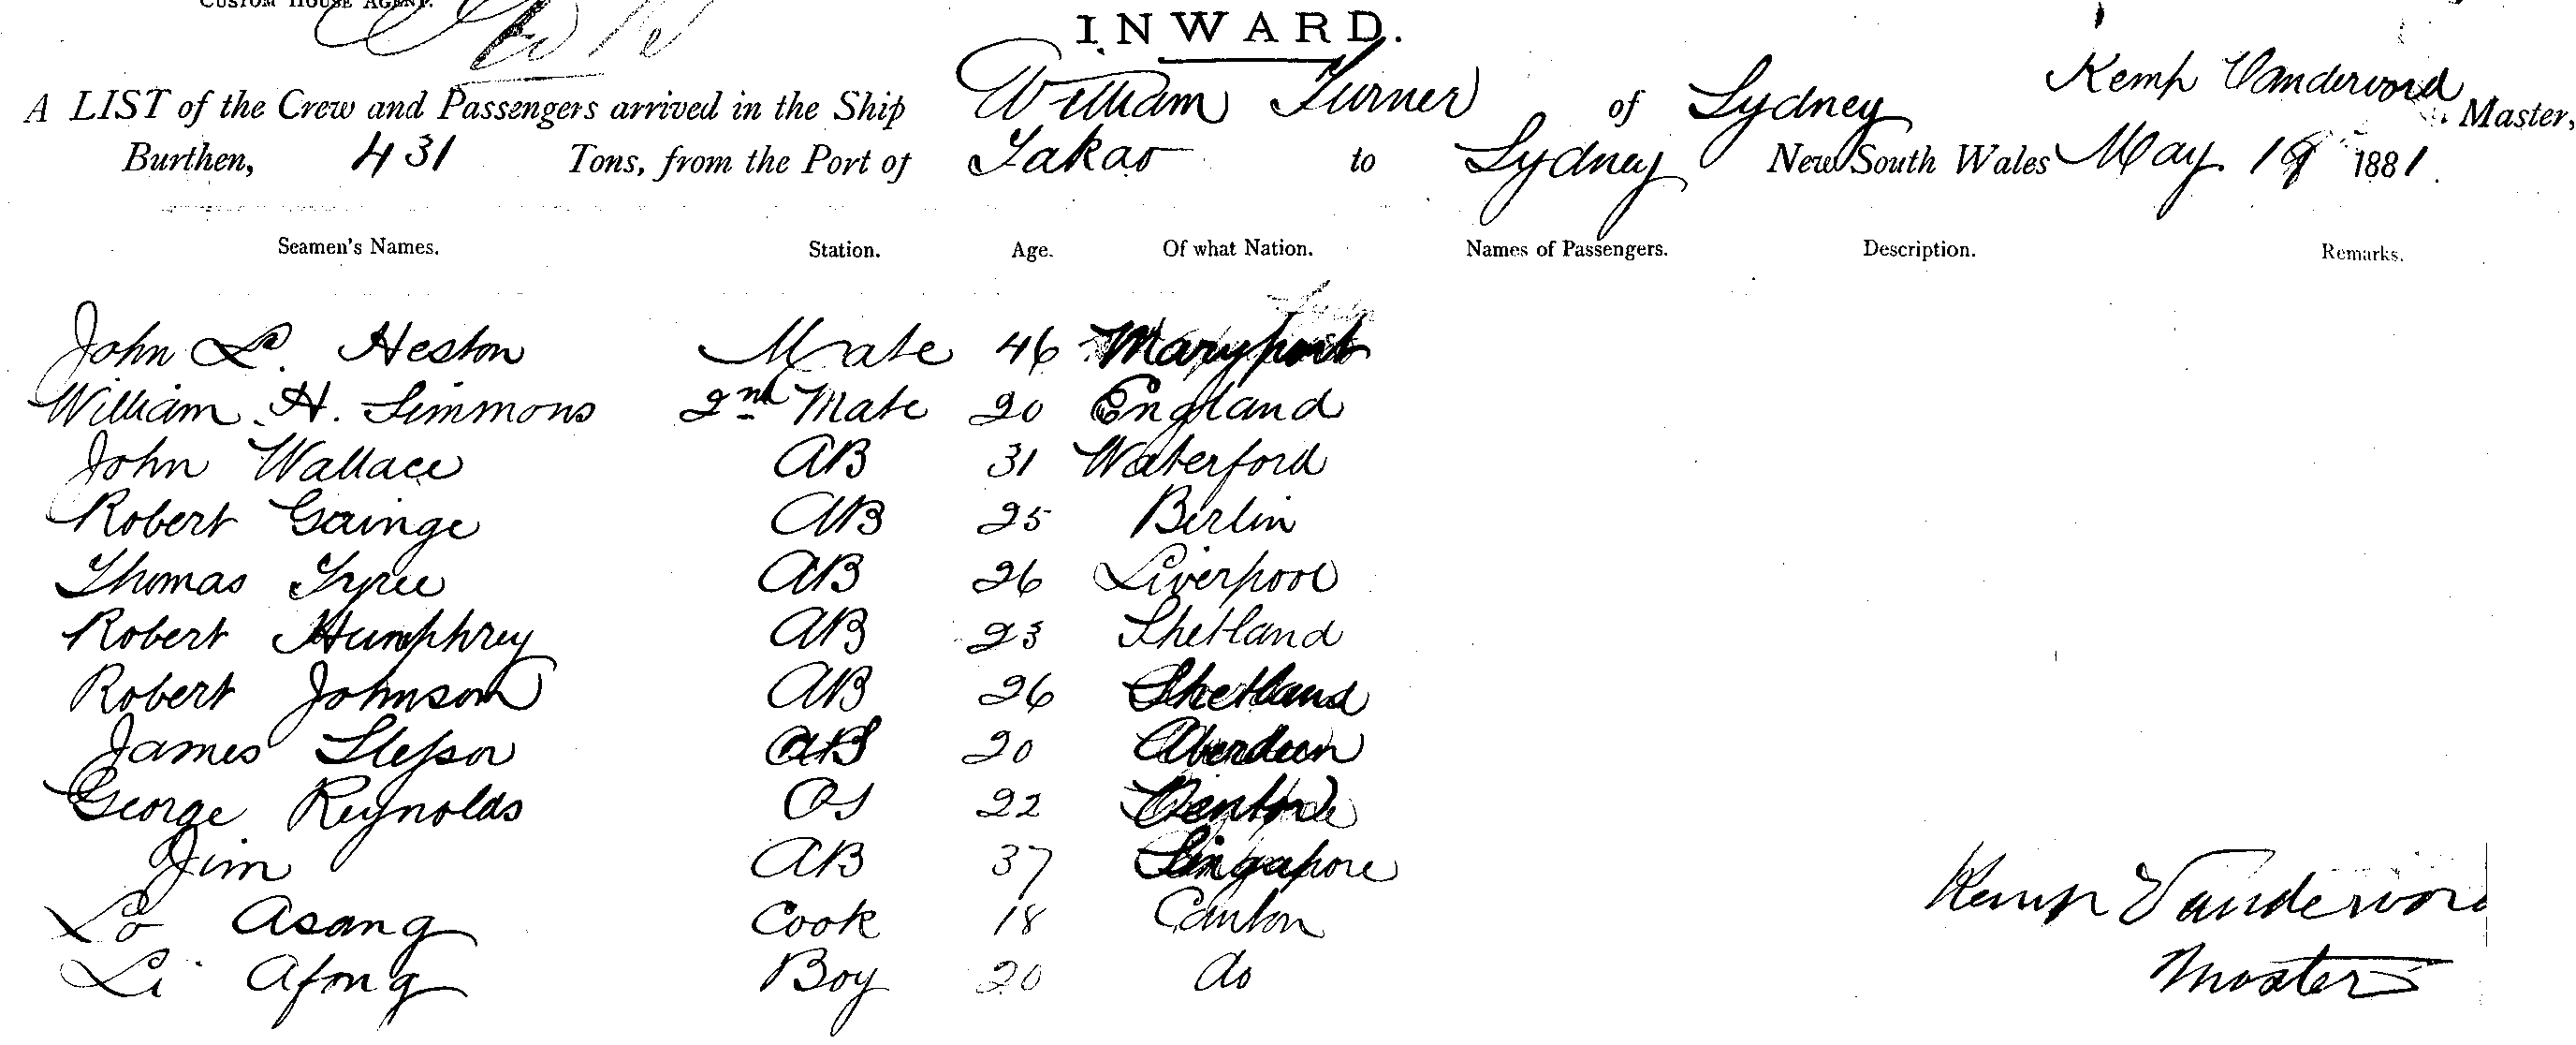 CUSTOM HOUSE AGENT.
INWARD.
Kemp Vandervord
A LIST of the Crew and Passengers arrived in the Ship William Turner of Sydney Master,
Burthen, 431 Tons, from the Port of Takao to Sydney New South Wales May 1881.
Seamen's Names. Station. Age. Of what Nation. Names of Passengers. Description. Remarks.
John Heston Mate 46 Maryport
William H. Simmons 2nd Mate 20 England
John Wallace AB 31 Waterford
Robert Gainge AB 25 Berlin
Thomas Tyree AB 26 Liverpool
Robert Humphrey AB 23 Shetland
Robert Johnson AB 26 Shetland
James Slessor AB 20 Aberdeen
George Reynolds OS 22
Jim AB 37 Singapore
Lo Asang Cook 18 Canton
Li Afong Boy 20 do
Kemp Vandervord
Master